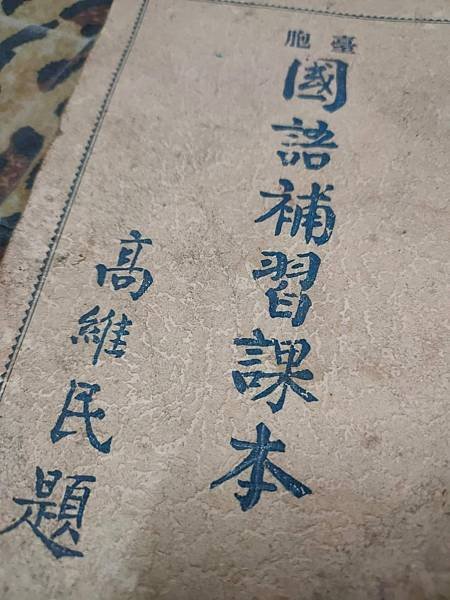 臺胞
國語補習課本
高維民題